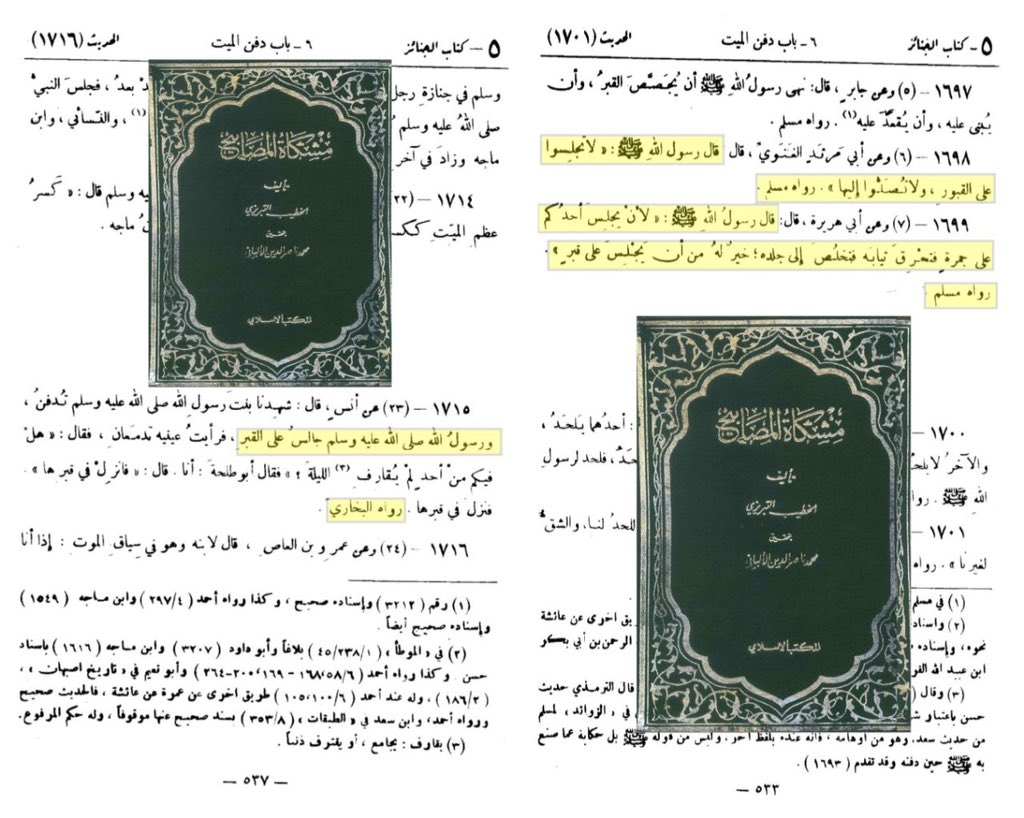 ٥ - كتاب الجنائز ٦ - باب دفن الميت الحديث (١٧٠١)
١٦٩٧ - (٥) وعن جابرٍ ، قال: نهى رسولُ اللهِ ﷺ أن يُجصَّصَ القبرُ ، وأن
يُبنى عليه ، وأن يُقعَدَ عليه(١). رواه مسلم .
١٦٩٨ - (٦) وعن أبي مَرثدٍ الغَنَويِّ ، قال قال رسول اللهِ ﷺ : « لا تجلِسوا
على القبورِ ، ولا تُصَلُّوا إليها » . رواه مسلم .
١٦٩٩ - (٧) وعن أبي هريرة ، قال: قال رسولُ اللهِ ﷺ : « لأنْ يجلِسَ أحدُكم
على جمرةٍ فتحْرِقَ ثيابَه فتخلُصَ إلى جلده؛ خيرٌ لهُ من أن يَجْلِسَ على قبرٍ » .
رواه مسلم .
مشكاة المصابيح
تأليف
الخطيب التبريزي
بتحقيق
محمد ناصر الدين الألباني
المكتب الإسلامي
١٧٠٠ - : أحدُهما يَلحَدُ ،
والآخرُ لا يلحَدُ فلحد لرسولِ
اللهِ ﷺ . رواه
١٧٠١ - اللحدُ لنا، والشقُّ
لغيرِنا » . رواه
(١) في مسلم
(٢) واسناده طريق اخرى عن عائشة
نحوه، وإسناده الرحمن بن أبي بكر
ابن عبيد الله
(٣) وقال قال الترمذي حديث
حسن باعتبار في « الزوائد ، لمسلم
من حديث سعد، وهو من أوهامه ، فانه عنده بلفظ آخر، وليس من قوله ﷺ بل حكاية عما صنع
به ﷺ حين دفنه وقد تقدم (١٦٩٣) .
- ٥٣٣ -
٥ - كتاب الجنائز ٦ - باب دفن الميت الحديث (١٧١٦)
وسلم في جنازة رجل بعدُ ، فجلسَ النبيُّ
صلى اللهُ عليه وسلم (١) ، والنَّسائي ، وابن
ماجه وزادَ في آخرِ
١٧١٤ - (٢٢) عليه وسلم قال : « كَسرُ
عظم الميّتِ ككسرِ ماجه .
مشكاة المصابيح
تأليف
الخطيب التبريزي
بتحقيق
محمد ناصر الدين الألباني
المكتب الإسلامي
١٧١٥ - (٢٣) عن أنس ، قال : شهدنا بنتَ رسولِ الله صلى الله عليه وسلم تُدفنُ ،
ورسولُ الله صلى الله عليه وسلم جالسٌ على القبرِ ، فرأيتُ عينيه تدمَعانِ ، فقال : « هلْ
فيكم منْ أحدٍ لمْ يُقارف (٣) الليلةَ ؟ » فقال أبو طلحةَ : أنا . قال : « فانزلْ في قبرِها » .
فنزلَ في قبرها . رواه البخاري .
١٧١٦ - (٢٤) وعن عمرو بن العاصِ ، قال لابنه وهو في سِياقِ الموت : إذا أنا
(١) رقم (٣٢١٢) وإسناده صحيح ، وكذا رواه أحمد (٢٩٧/٤) وابن ماجه (١٥٤٩)
وإسناده صحيح أيضاً .
(٢) في «الموطأ» (٤٥/٢٣٨/١) بلاغاً وأبو داود (٣٢٠٧) وابن ماجه (١٦١٦) باسناد
حسن وكذا رواه أحمد (١٦٨،٥٨/٦ - ١٦٩، ٢٠٠-٢٦٤) وأبو نعيم في « تاريخ اصبهان » ،
(١٨٦/٢) ، وله عند أحمد (١٠٥/١٠٠/٦) طريق اخرى عن عمرة عن عائشة ، فالحديث صحيح
ورواه أحمد، وابن سعد في « الطبقات » (٣٥٣/٨) بسند صحيح عنها موقوفاً ، وله حكم المرفوع.
(٣) يقارف : يجامع ، أو يقترف ذنباً .
- ٥٣٧ -